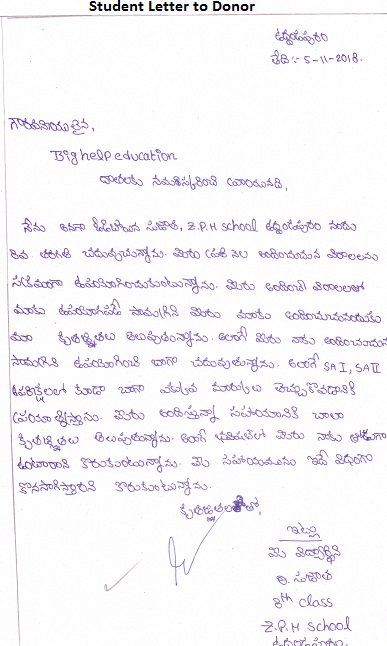 Student Letter to Donor
ఉద్దండపురం
తేది :- 5-11-2018.
గౌరవనీయులైన,
Big help education
దాతలకు నమస్కరించి వ్రాయునది,
నేను అనగా సుజాత, Z.P.H school ఉద్దండపురం నందు
8వ తరగతి చదువుచున్నాను. మీరు ప్రతి నెల అందించుచున్న విరాళాలను
సక్రమంగా ఉపయోగించుకుంటున్నాను. మీరు అందించే విరాళాలతో
మాకు ఉపయోగపడే సామగ్రిని మీరు మాకు అందించుచున్నందుకు
మా కృతజ్ఞతలు తెలుపుతున్నాను. అలాగే మీరు నాకు అందించుచున్న
సామగ్రిని ఉపయోగించి బాగా చదువుతున్నాను. అలాగే SA I, SA II
పరీక్షలలో కూడా బాగా మార్కులు తెచ్చుకోవడానికి
ప్రయత్నిస్తాను. మీరు అందిస్తున్న సహాయానికి చాలా
కృతజ్ఞతలు తెలుపుతున్నాను. ఇలాగే భవిష్యత్‌లో మీరు నాకు తోడుగా
ఉంటారని కోరుకుంటున్నాను. మీ సహాయమును ఇదే విధంగా
కొనసాగిస్తారని కోరుకుంటున్నాను.
కృతజ్ఞతలతో,
ఇట్లు
మీ విద్యార్థిని
సుజాత
8th class
Z.P.H School
ఉద్దండపురం.